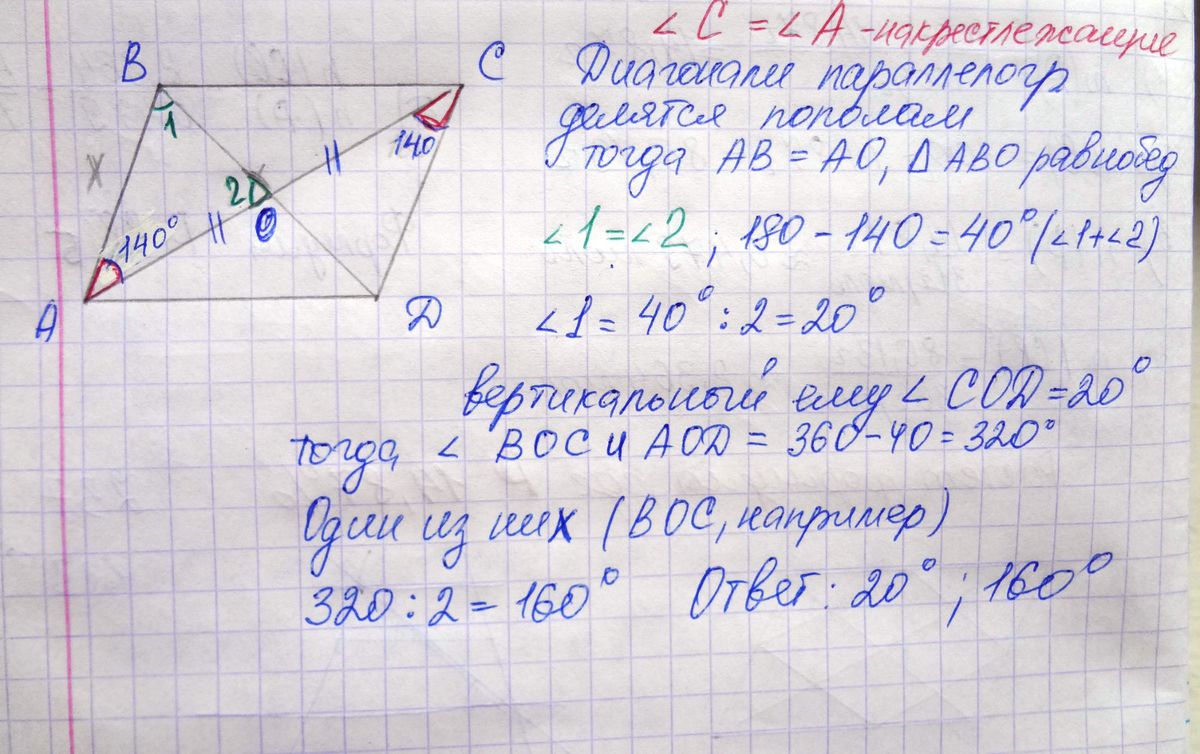 ∠C = ∠A - накрестлежащие
B
C
Диагонали параллелогр
делятся пополам
тогда AB = AO, Δ ABO равнобед
1
140
x
2
O
140°
∠1=∠2; 180 - 140 = 40° (∠1+∠2)
A
D
∠1 = 40° : 2 = 20°
вертикальный ему ∠ COD = 20°
тогда ∠ BOC и AOD = 360 - 40 = 320°
Один из них (BOC, например)
320 : 2 = 160° Ответ: 20°; 160°